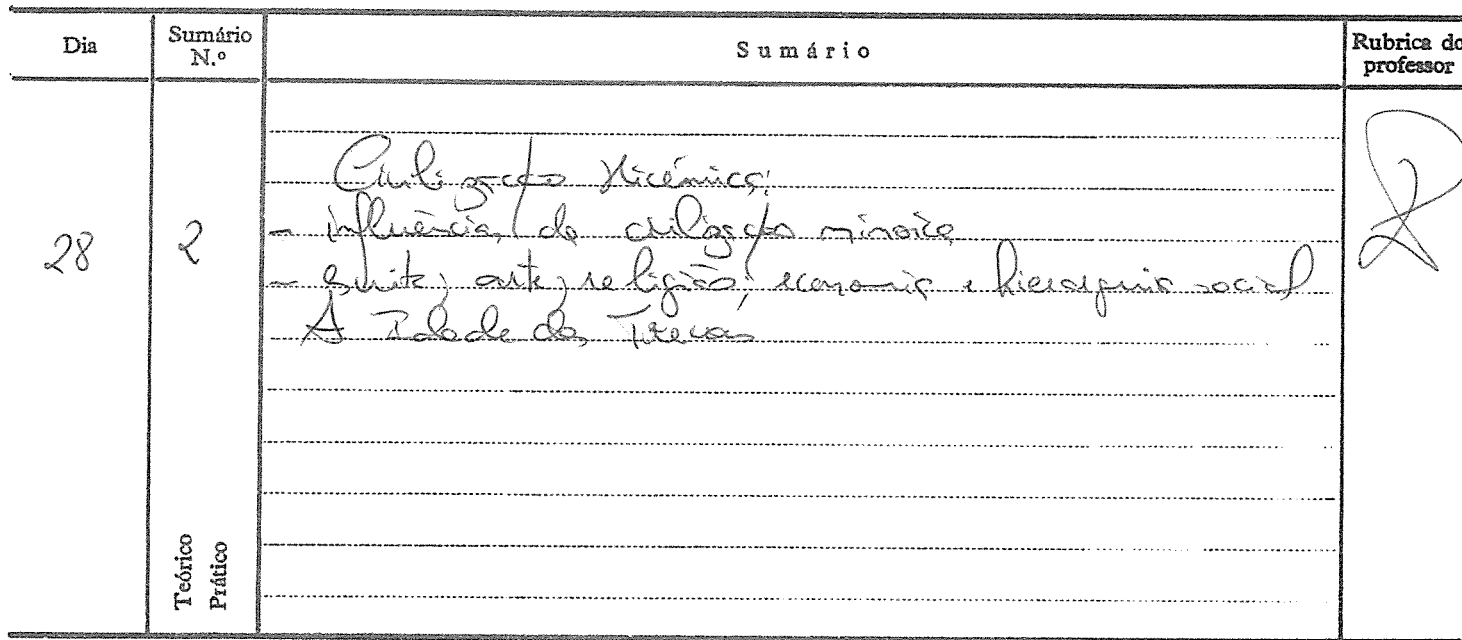 Dia
Sumário N.º
Sumário
Rubrica do professor
28
2
Civilização Micénica:
- influência da civilização minoica
- escrita, arte, religião, economia e hierarquia social
A Idade das Trevas
Teórico
Prático